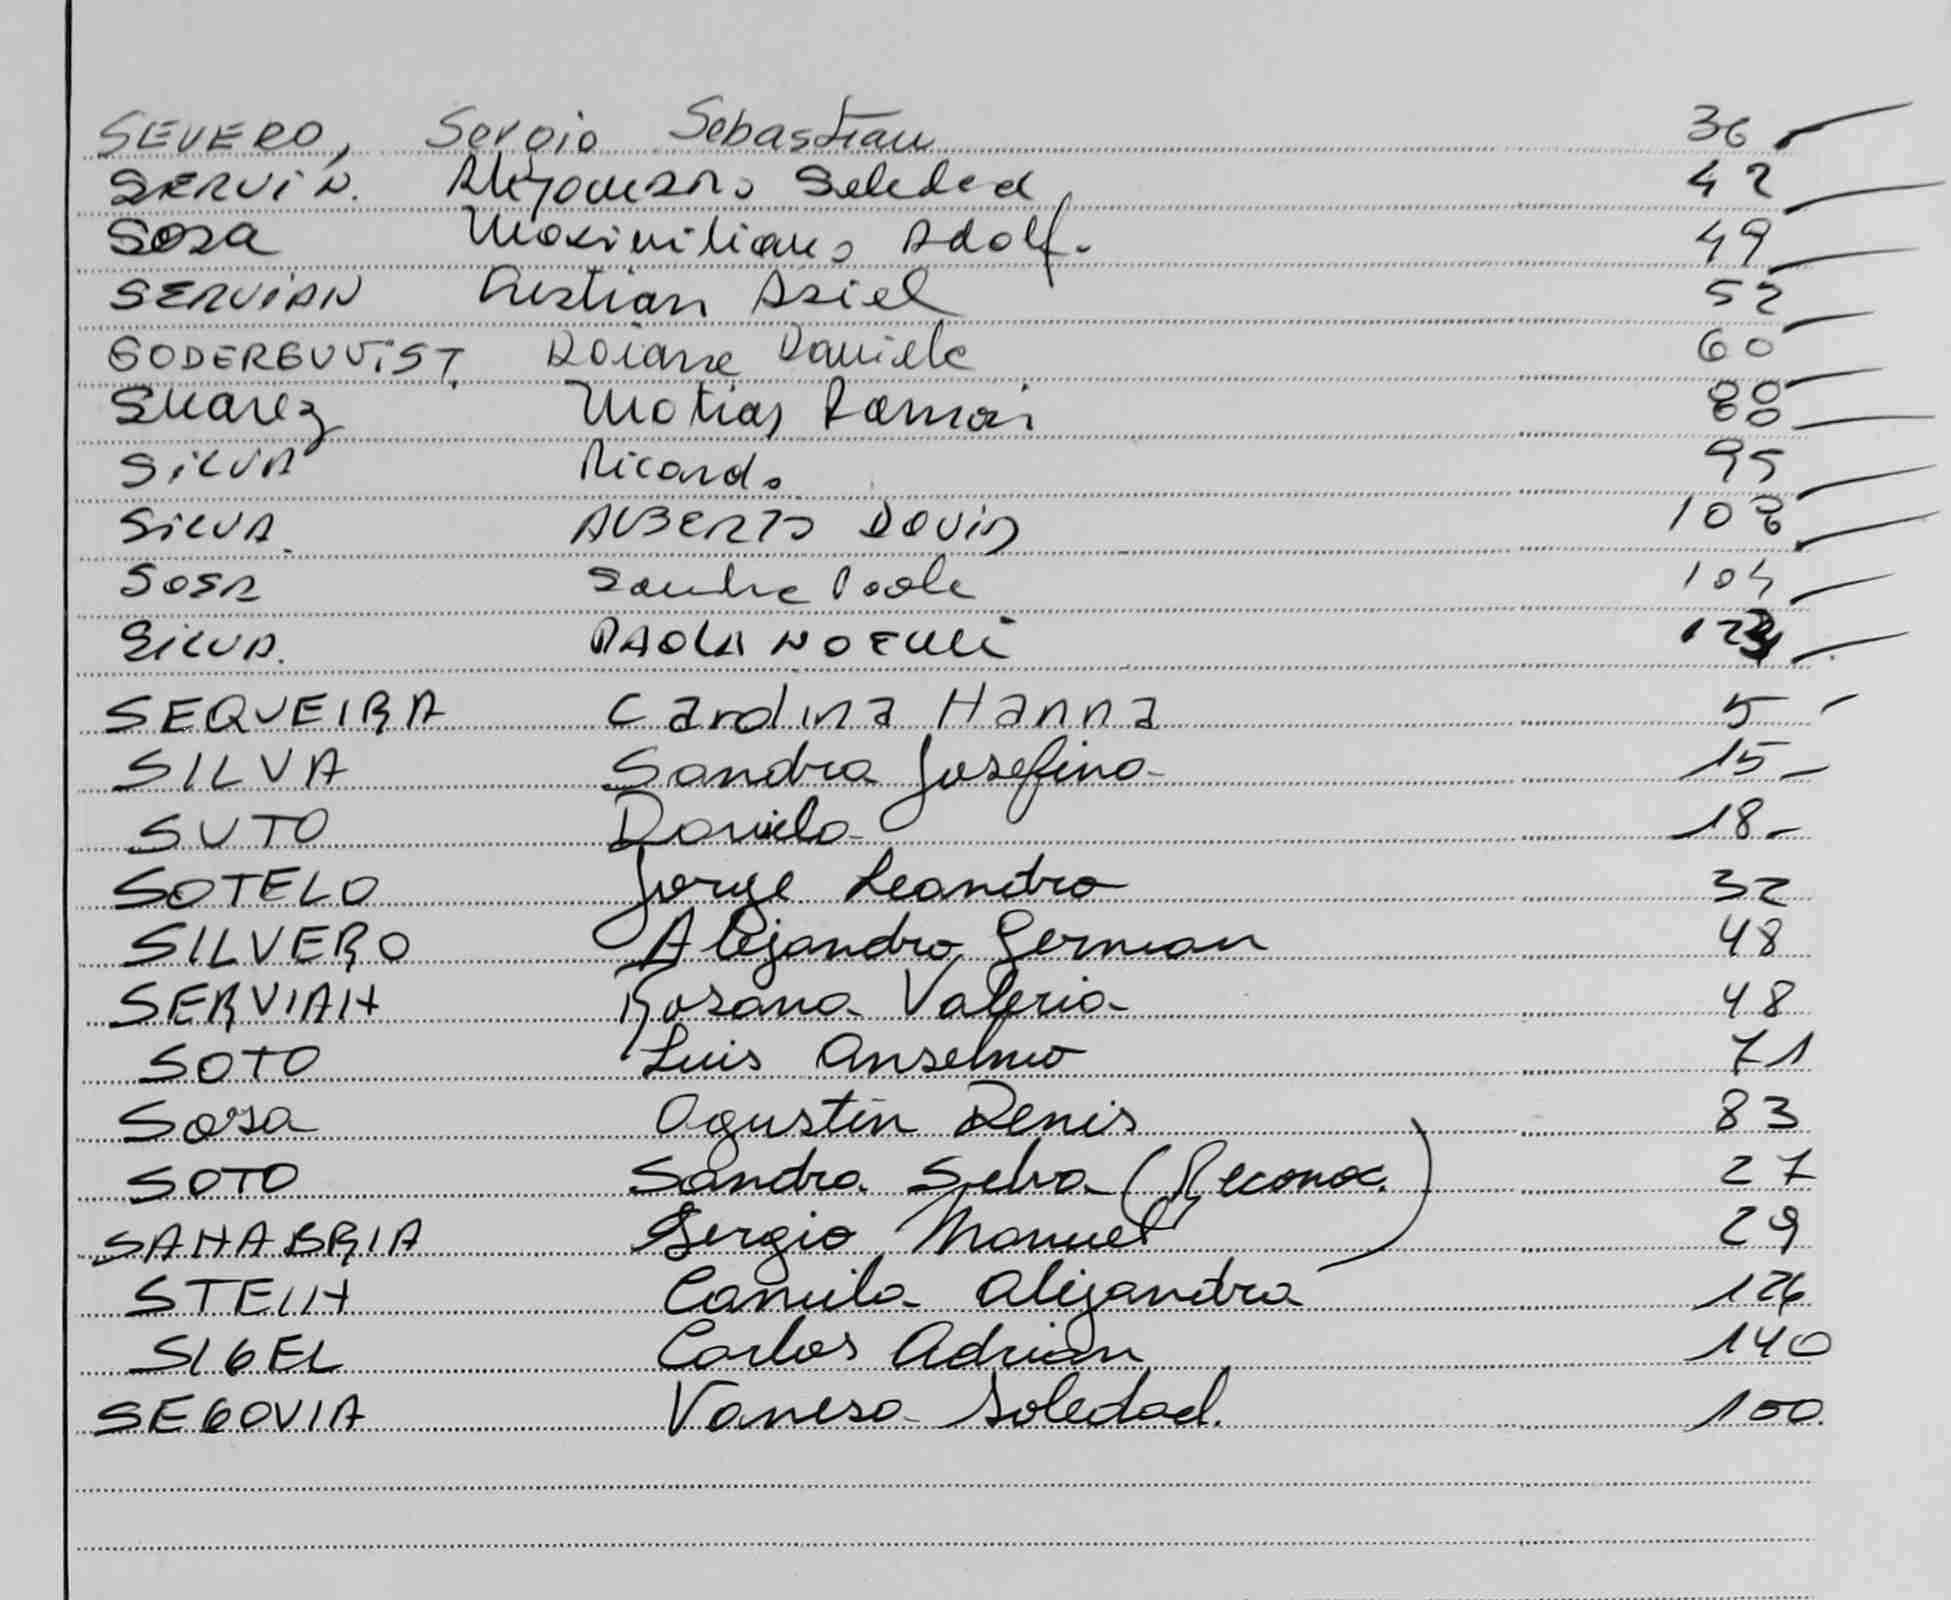 SEVERO, Sergio Sebastian 36
SERVIN. Alejandro Soledad 42
Sosa Maximiliano Adolf. 49
SERVIAN Cristian Asiel 52
SODERGUVIST. Daniele 60
Suarez Matias Ramon 80
SILVA Ricardo 95
SILVA. ALBERTO DAVID 108
SOSA Sandra Paola 104
SILVA. PAOLA NOEMI
SEQUEIRA Carolina Hanna 5 -
SILVA Sandra Josefina 15 -
SUTO Daniela 18 -
SOTELO Jorge Leandro 32
SILVERO Alejandro German 48
SERVIAN Rosana Valeria 48
SOTO Luis Anselmo 71
Sosa Agustín Denis 83
SOTO Sandra Selva (Reconoc.) 27
SANABRIA Sergio Manuel 29
STEIN Camila Alejandra 126
SIGEL Carlos Adrian 140
SEGOVIA Vanesa Soledad. 100